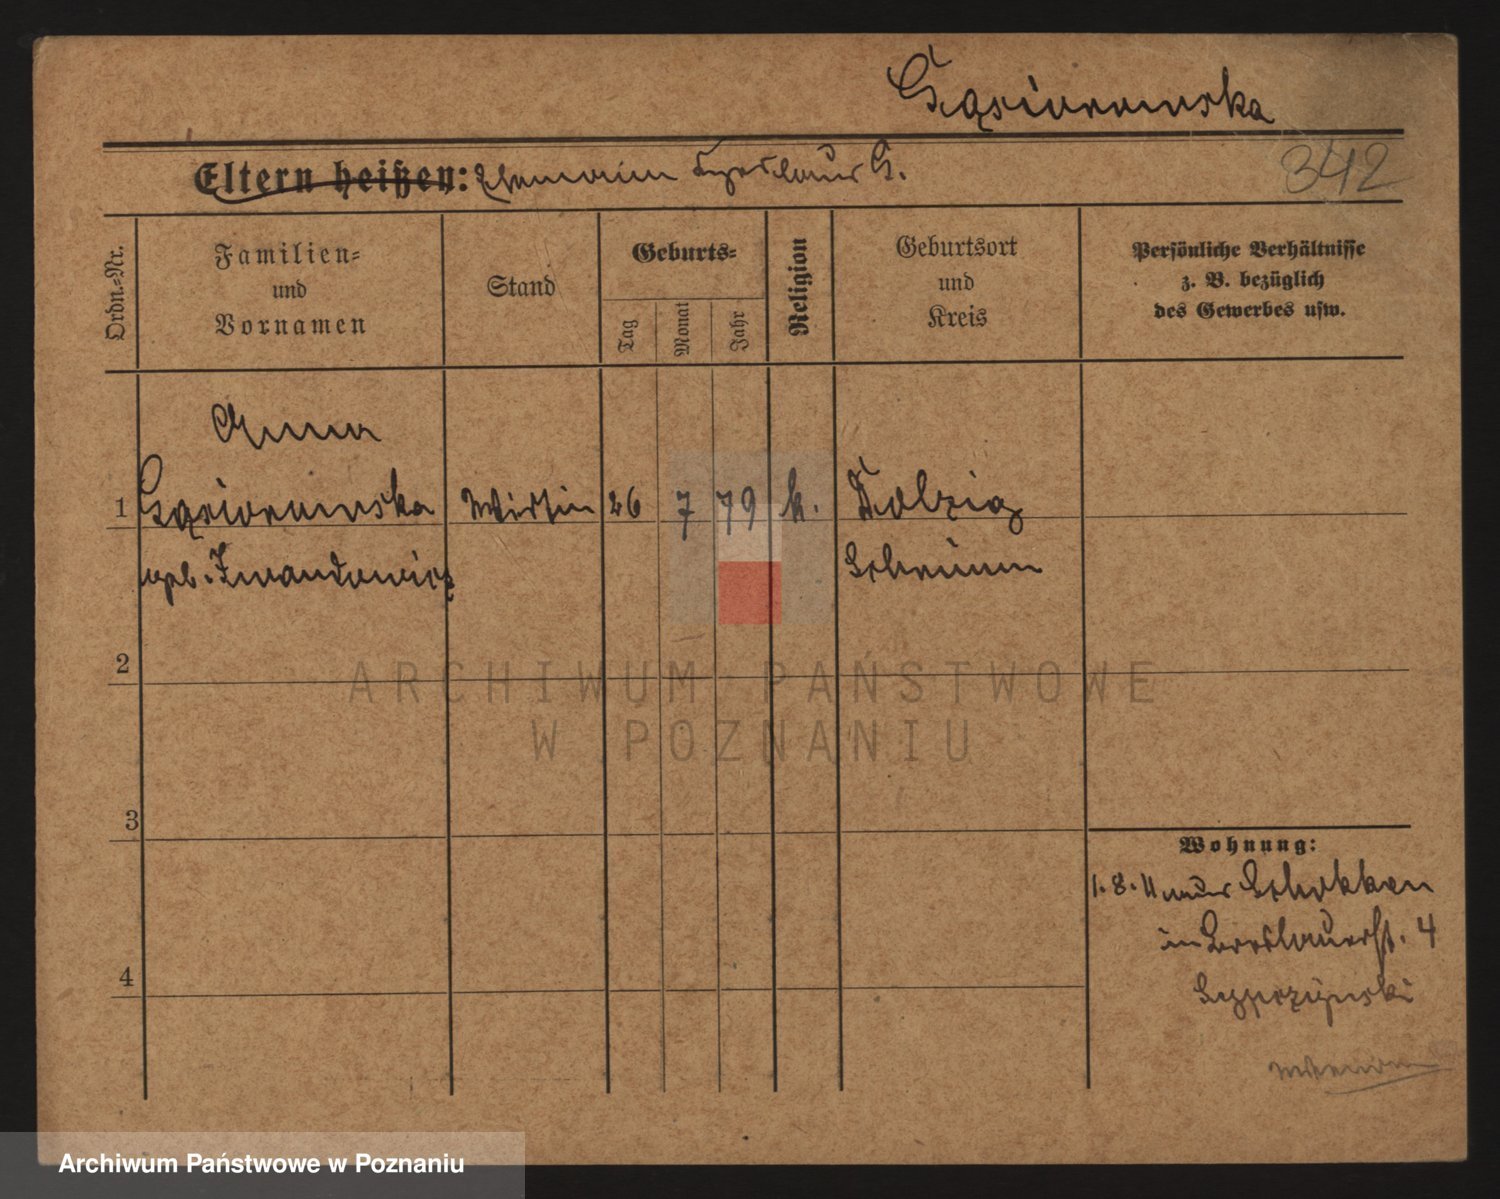 Gąsiorowska
Eltern heißen: Ehemann G.
342
Ordn.-Nr.
Familien-
und
Vornamen
Stand
Geburts-
Tag
Monat
Jahr
Religion
Geburtsort
und
Kreis
Persönliche Verhältnisse
z. B. bezüglich
des Gewerbes usw.
Anna
1 Gąsiorowska Wirtin 26 7 79 k. Dolzig
geb. Schrimm
2
ARCHIWUM PAŃSTWOWE
W POZNANIU
3
Wohnung:
1.8.11 aus Schokken
in Breslauerst. 4
4
Archiwum Państwowe w Poznaniu